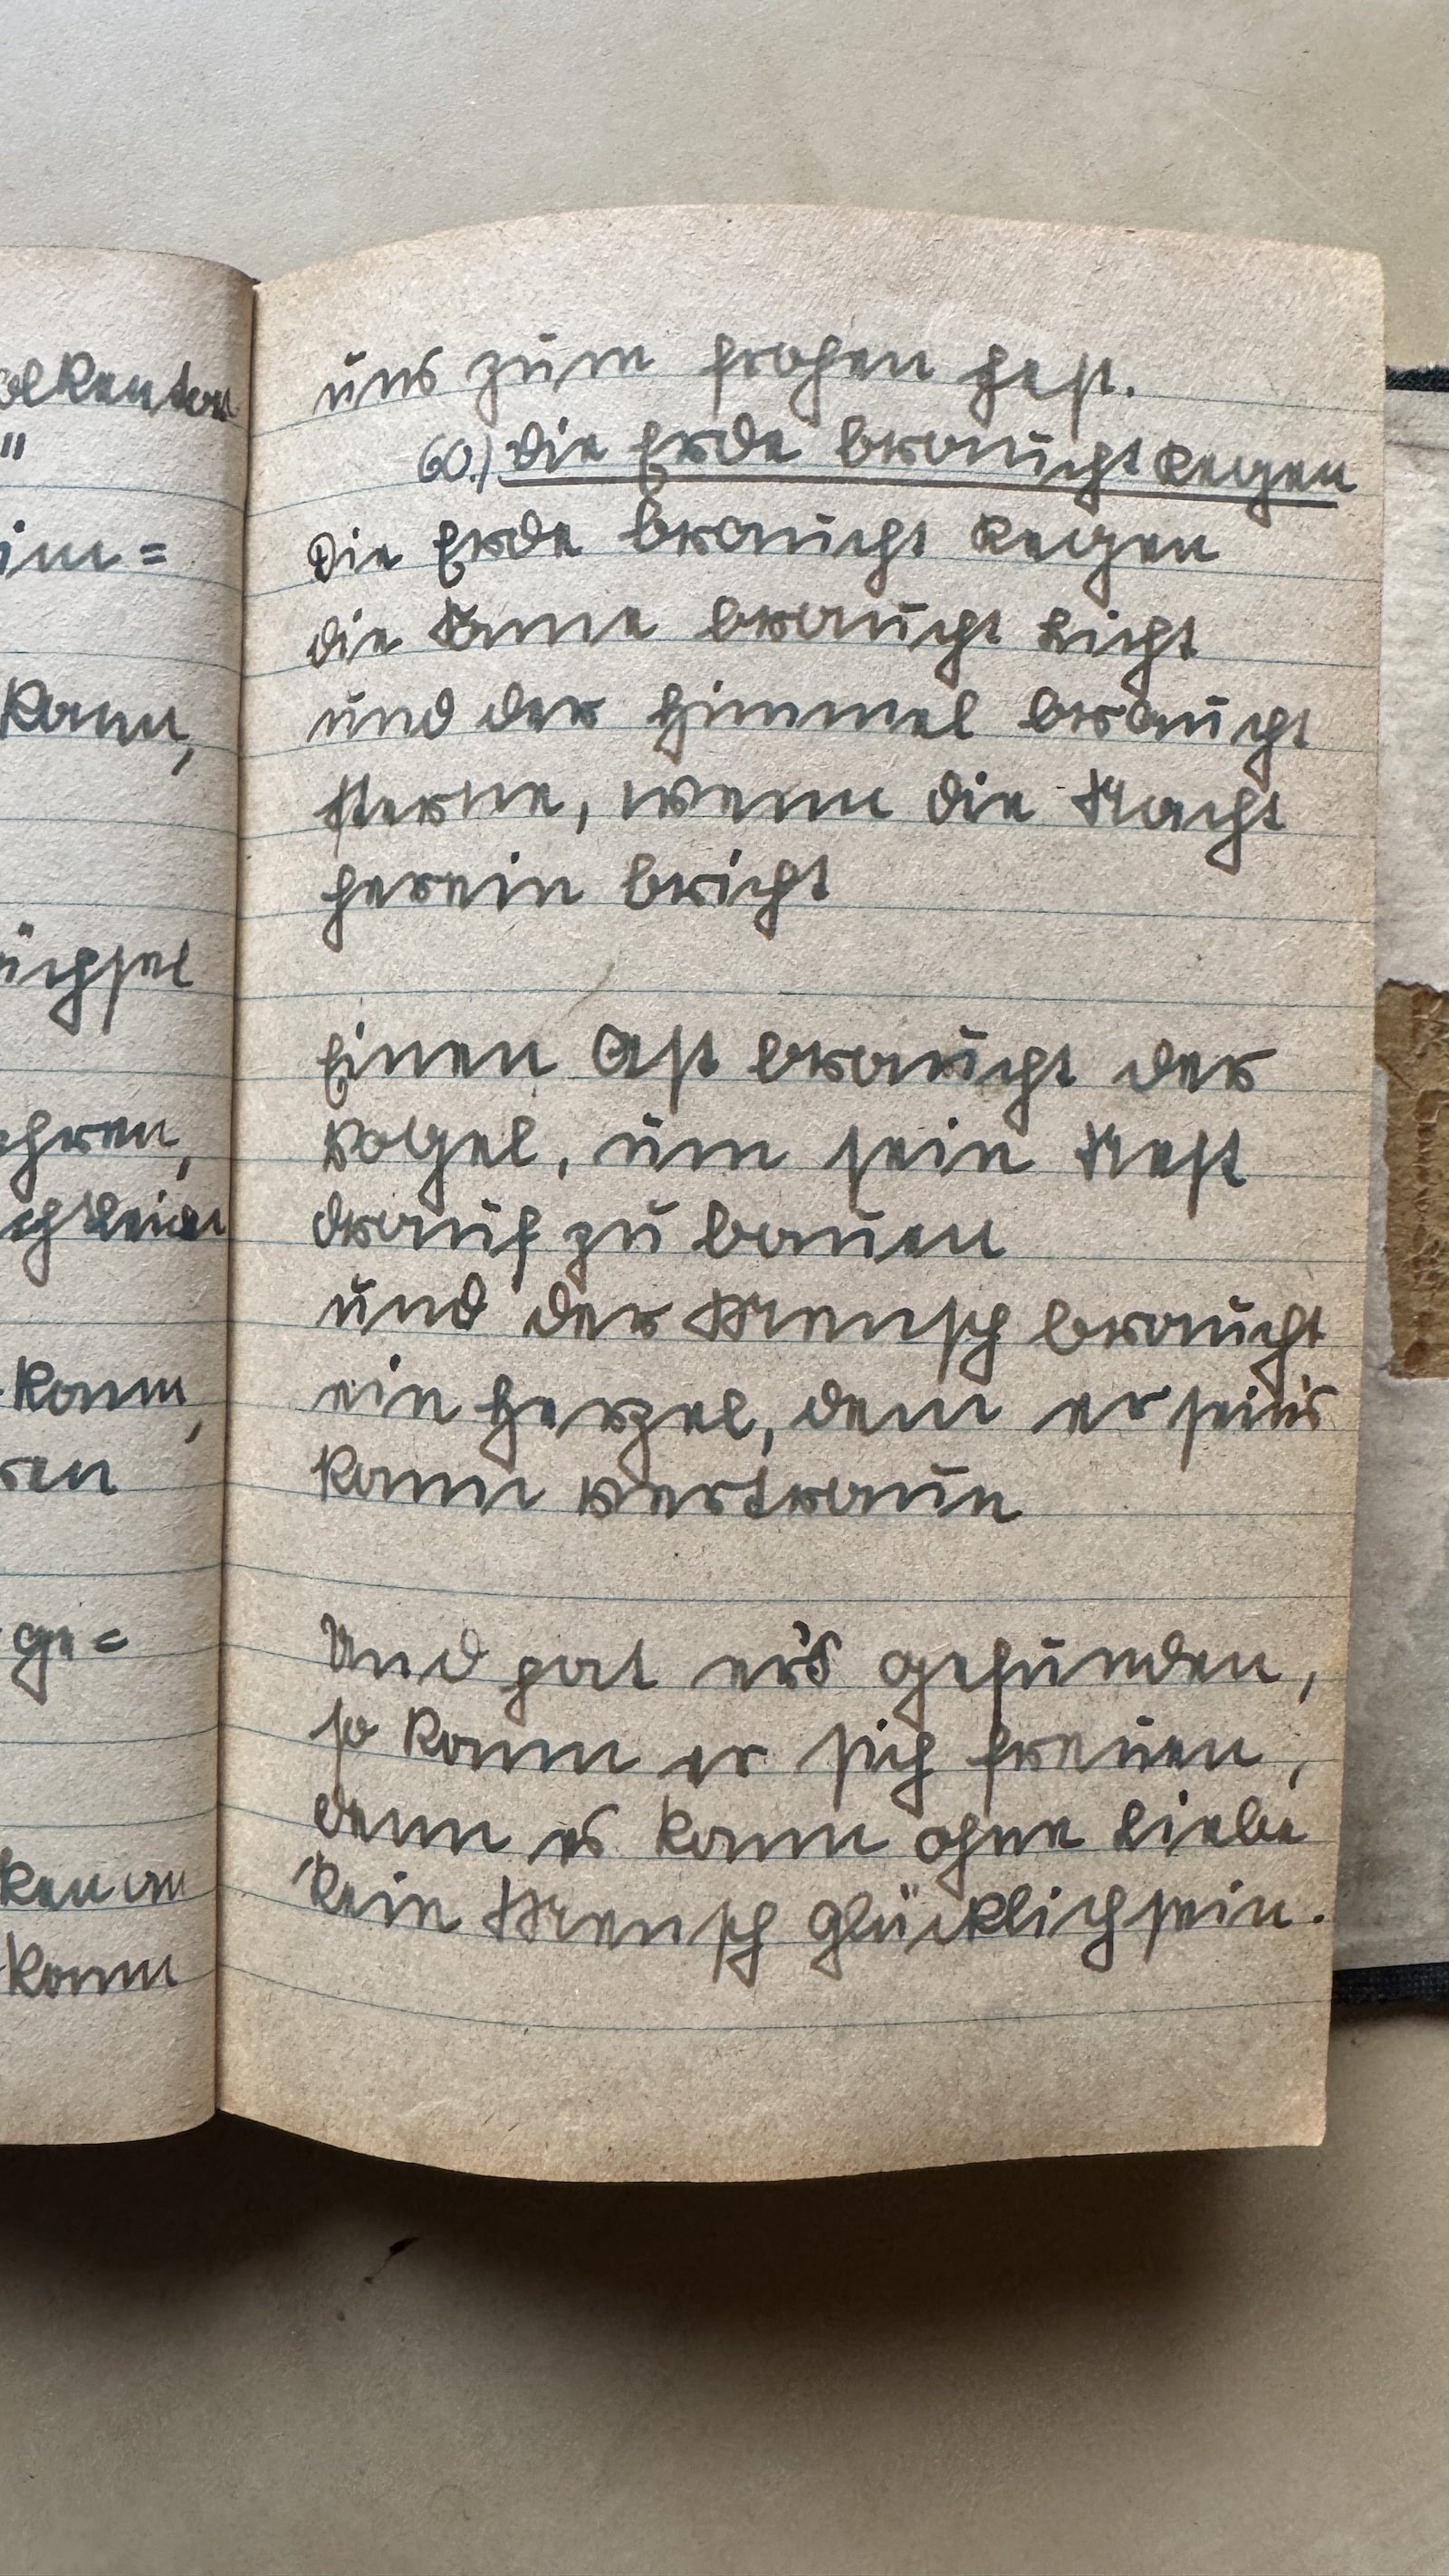 "
im =
kann,
üchsel
ahren,
kann,
ren
ge=
kann
uns zum frohen Fest.
60.) Die Erde braucht Regen
Die Erde braucht Regen
die Sonne braucht Licht
und der Himmel braucht
Sterne, wenn die Nacht
herein bricht
Einen Ast braucht der
Vogel, um sein Nest
drauf zu bauen
und der Mensch braucht
ein Herzel, dem er sein's
kann vertraun
Und hat er's gefunden,
so kann er sich freuen,
denn es kann ohne Liebe
kein Mensch glücklich sein.